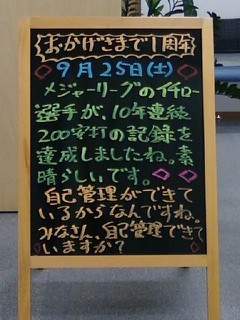 おかげさまで1周年
9月25日(土)
メジャーリーグのイチロー
選手が、10年連続
200安打の記録を
達成しましたね。素
晴らしいです。
自己管理ができて
いるからなんですね。
みなさん、自己管理できて
いますか?